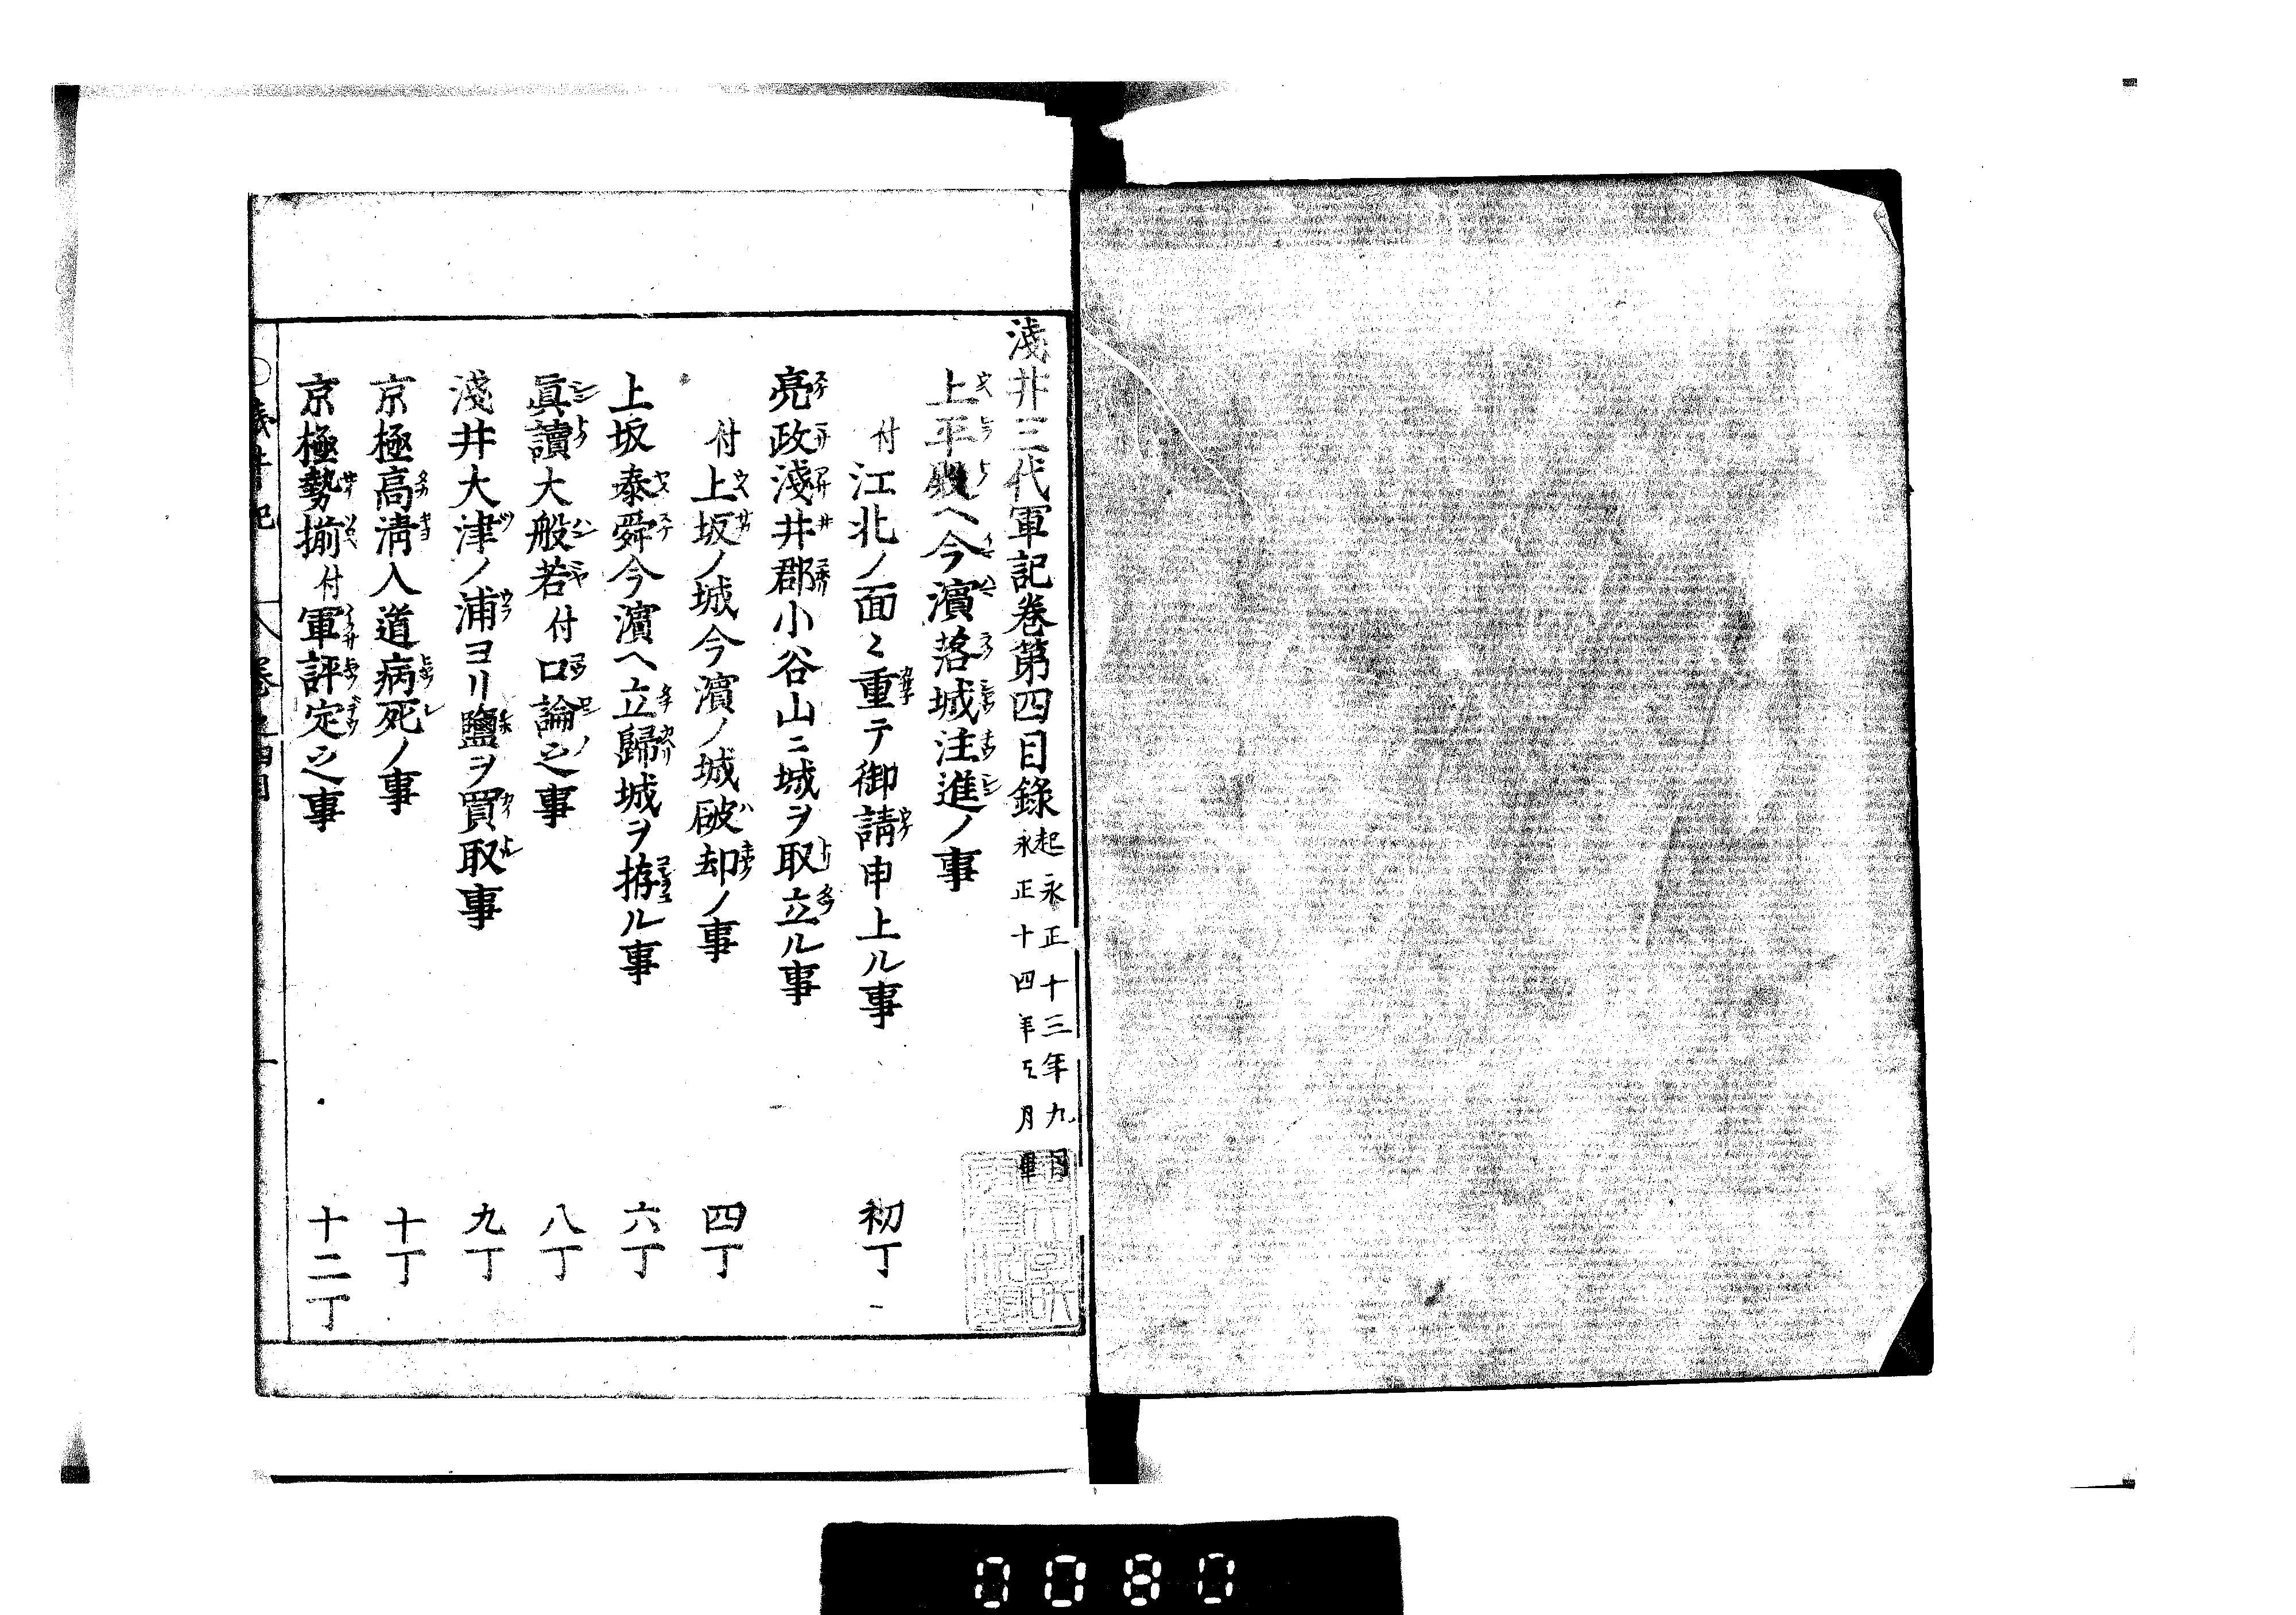 淺井三代軍記卷第四目錄 起永正十三年九月
永正十四年三月畢
上平殿ヘ今濱落城注進ノ事
付江北ノ面〻重テ御請申上ル事 初丁
亮政淺井郡小谷山ニ城ヲ取立ル事
付上坂ノ城今濱ノ城破却ノ事 四丁
上坂泰舜今濱ヘ立歸城ヲ拵ル事 六丁
眞讀大般若付口論之事 八丁
淺井大津ノ浦ヨリ鹽ヲ買取事 九丁
京極高淸入道病死ノ事 十丁
京極勢揃付軍評定之事 十二丁
0080